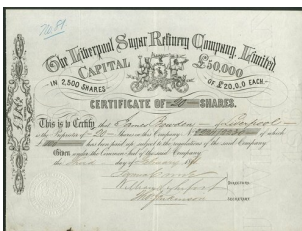 No. 81.
The Liverpool Sugar Refinery Company, Limited.
CAPITAL £50,000
IN 2,500 SHARES OF £20,0,0 EACH.
CERTIFICATE OF 20 SHARES.
This is to Certify that James Bowden of Liverpool
is the Proprietor of 20 Shares in this Company, No of which
£ has been paid up, subject to the regulations of the said Company.
Given under the Common Seal of the said Company
the day of February
DIRECTORS
SECRETARY